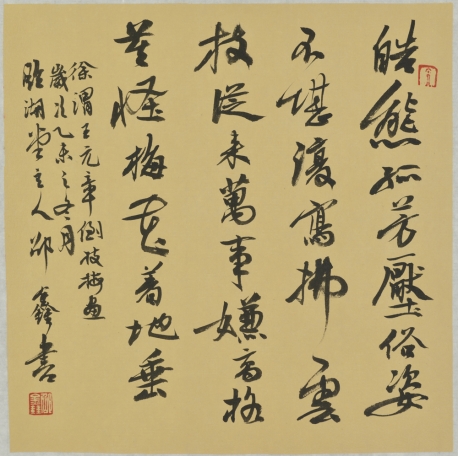 皓態孤芳壓俗姿
不堪復寫拂雲
枝從來萬事嫌高格
莫怪梅花着地垂
徐渭王元章倒枝梅畫
歲次乙未之冬月
湖堂主人鑫書